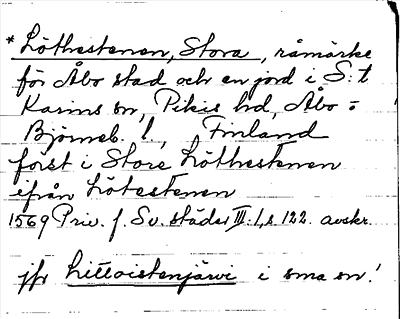 * Löthestenen, Stora, råmärke
för Åbo stad och en jord i S:t
Karins sn, Pikis hd, Åbo-
Björneb. l., Finland
forst i Store Löthestenen
ifrån Lötestenen
1569 Priv. f. Sv. städer III:1, s 122. avskr.
jfr Littoistenjärvi i sma sn!